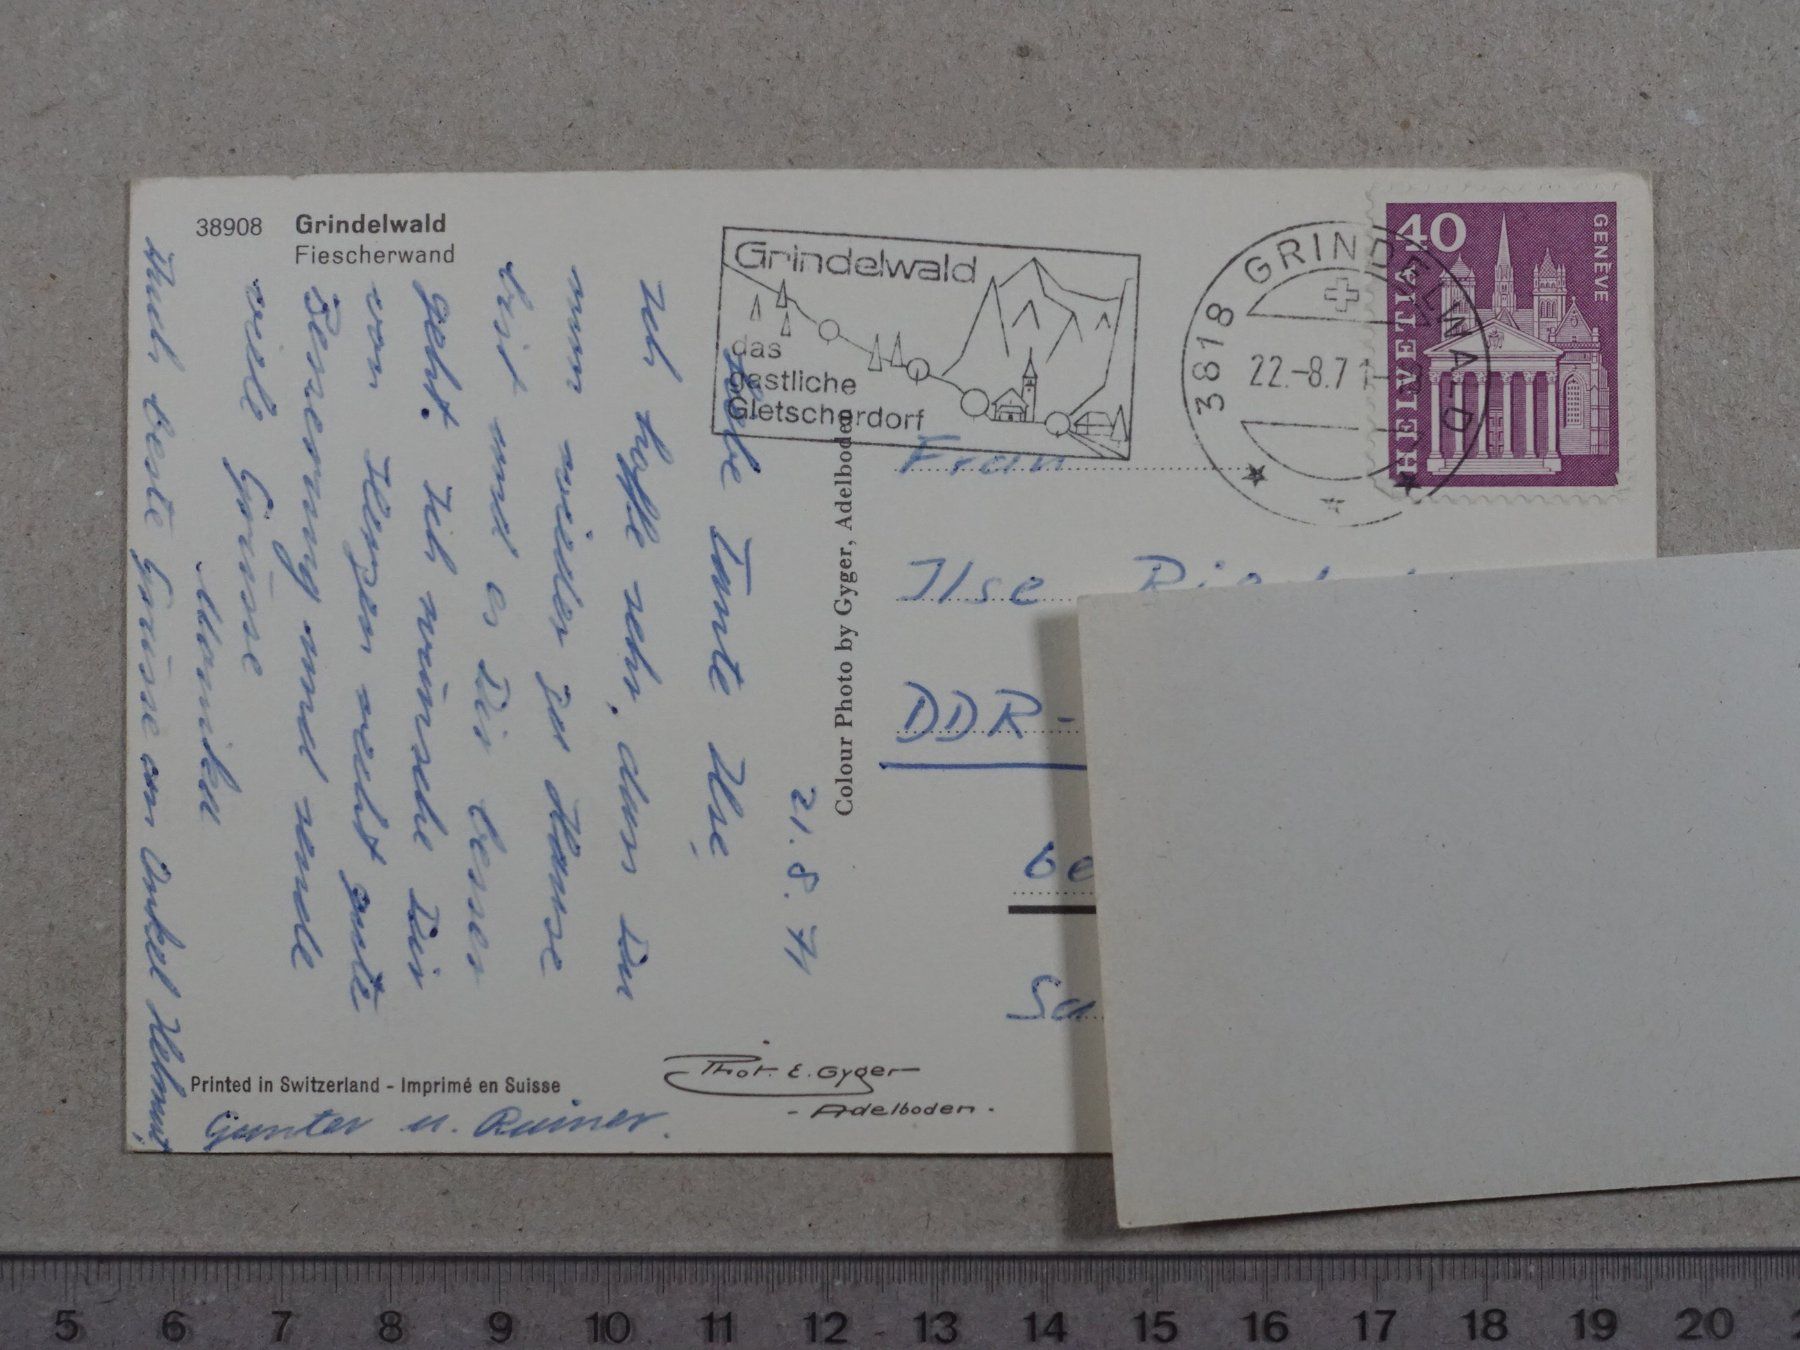 38908 Grindelwald
Fiescherwand
Grindelwald
das
gastliche
Gletscherdorf
3818 GRINDELWALD
22.-8.71
40
GENÈVE
HELVETIA
21.8.71
Liebe Tante Ilse,
Ich hoffe sehr, dass Du
nun wieder zu Hause
bist und es Dir besser
geht. Ich wünsche Dir
von Herzen recht gute
Besserung und sende
viele Grüsse
Monika
Auch beste Grüsse von Onkel Helmut,
Gunter u. Rainer.
Colour Photo by Gyger, Adelboden
Frau
Ilse
DDR-
Printed in Switzerland - Imprimé en Suisse
Phot. E. Gyger
- Adelboden -
5 6 7 8 9 10 11 12 13 14 15 16 17 18 19 20